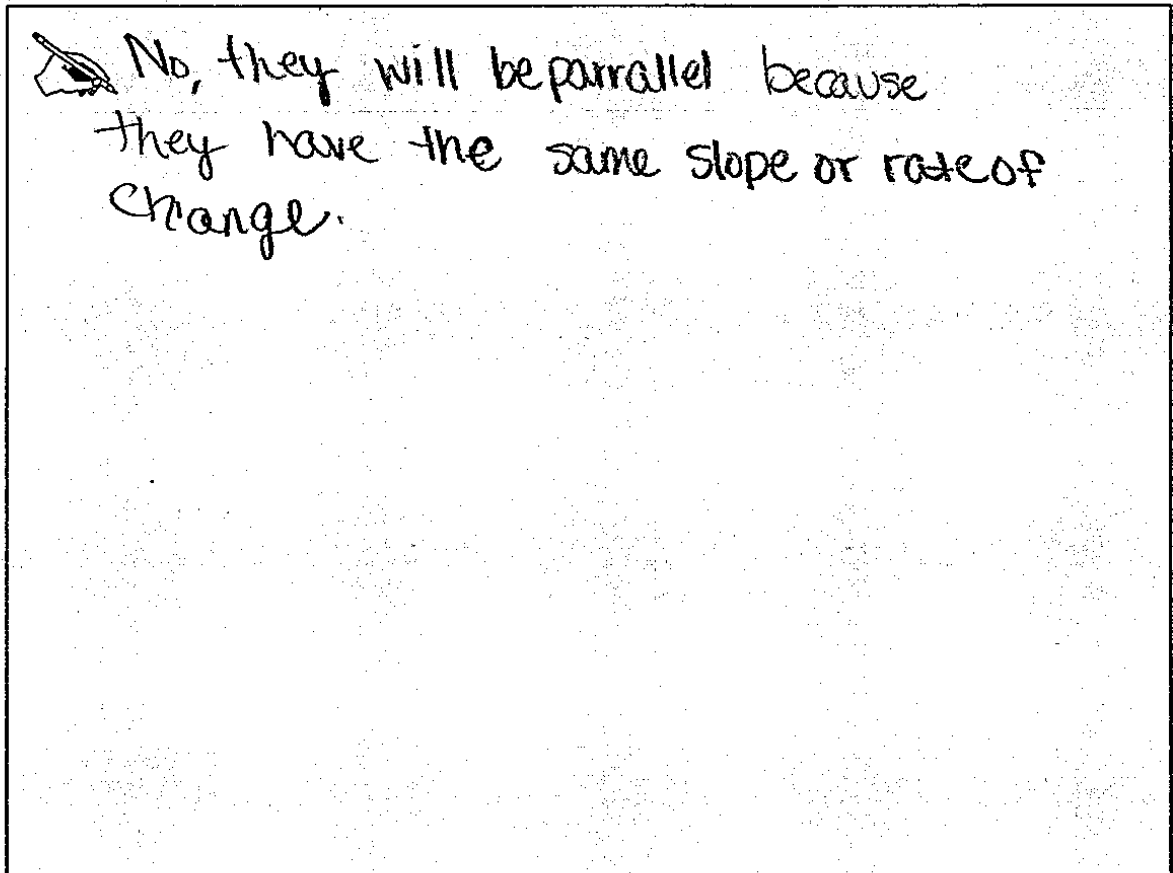 No, they will be parrallel because
they have the same slope or rate of
change.